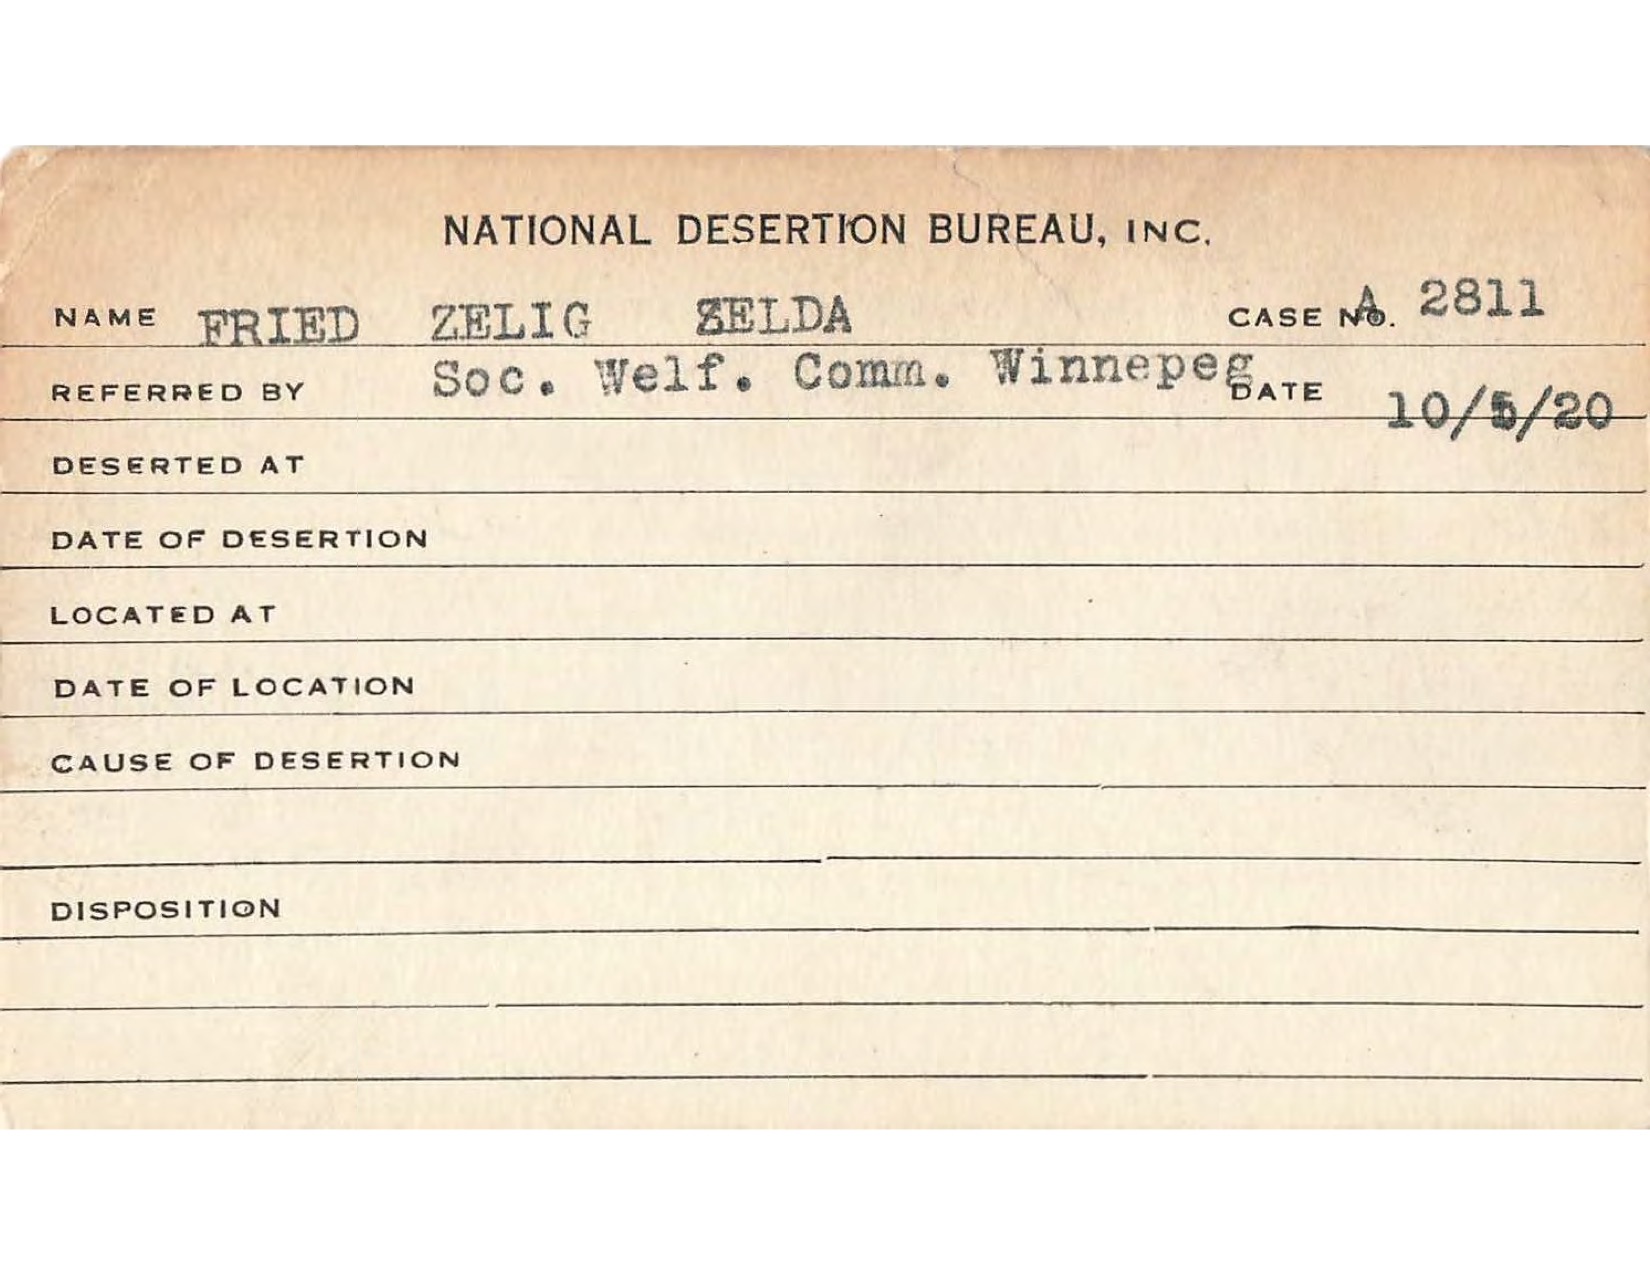 NATIONAL DESERTION BUREAU, INC.
NAME FRIED ZELIG ZELDA CASE NO. A 2811
REFERRED BY Soc. Welf. Comm. Winnepeg DATE 10/5/20
DESERTED AT
DATE OF DESERTION
LOCATED AT
DATE OF LOCATION
CAUSE OF DESERTION
DISPOSITION